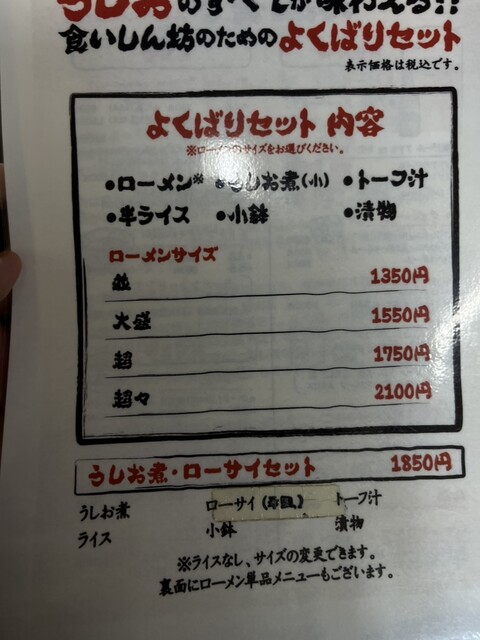 うしおのすべてが味わえる!!
食いしん坊のためのよくばりセット
表示価格は税込です。
よくばりセット 内容
※ローメンのサイズをお選びください。
•ローメン※ •うしお煮(小) •トーフ汁
•半ライス •小鉢 •漬物
ローメンサイズ
並 1350円
大盛 1550円
超 1750円
超々 2100円
うしお煮・ローサイセット 1850円
うしお煮 ローサイ トーフ汁
ライス 小鉢 漬物
※ライスなし、サイズの変更できます。
裏面にローメン単品メニューもございます。